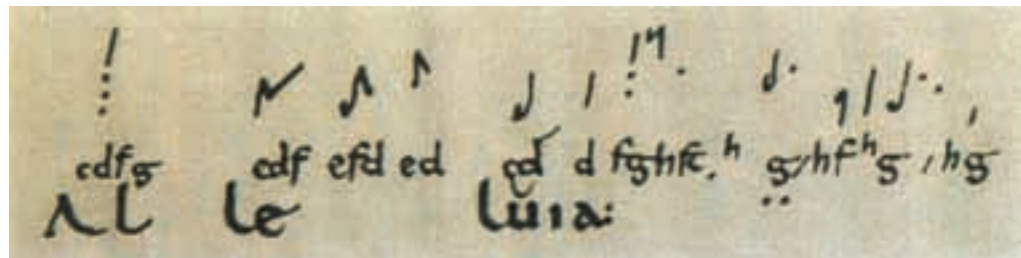 cdfg cdf efd ed cd d fghfc. h g/hf h g /hg
Al le luia: